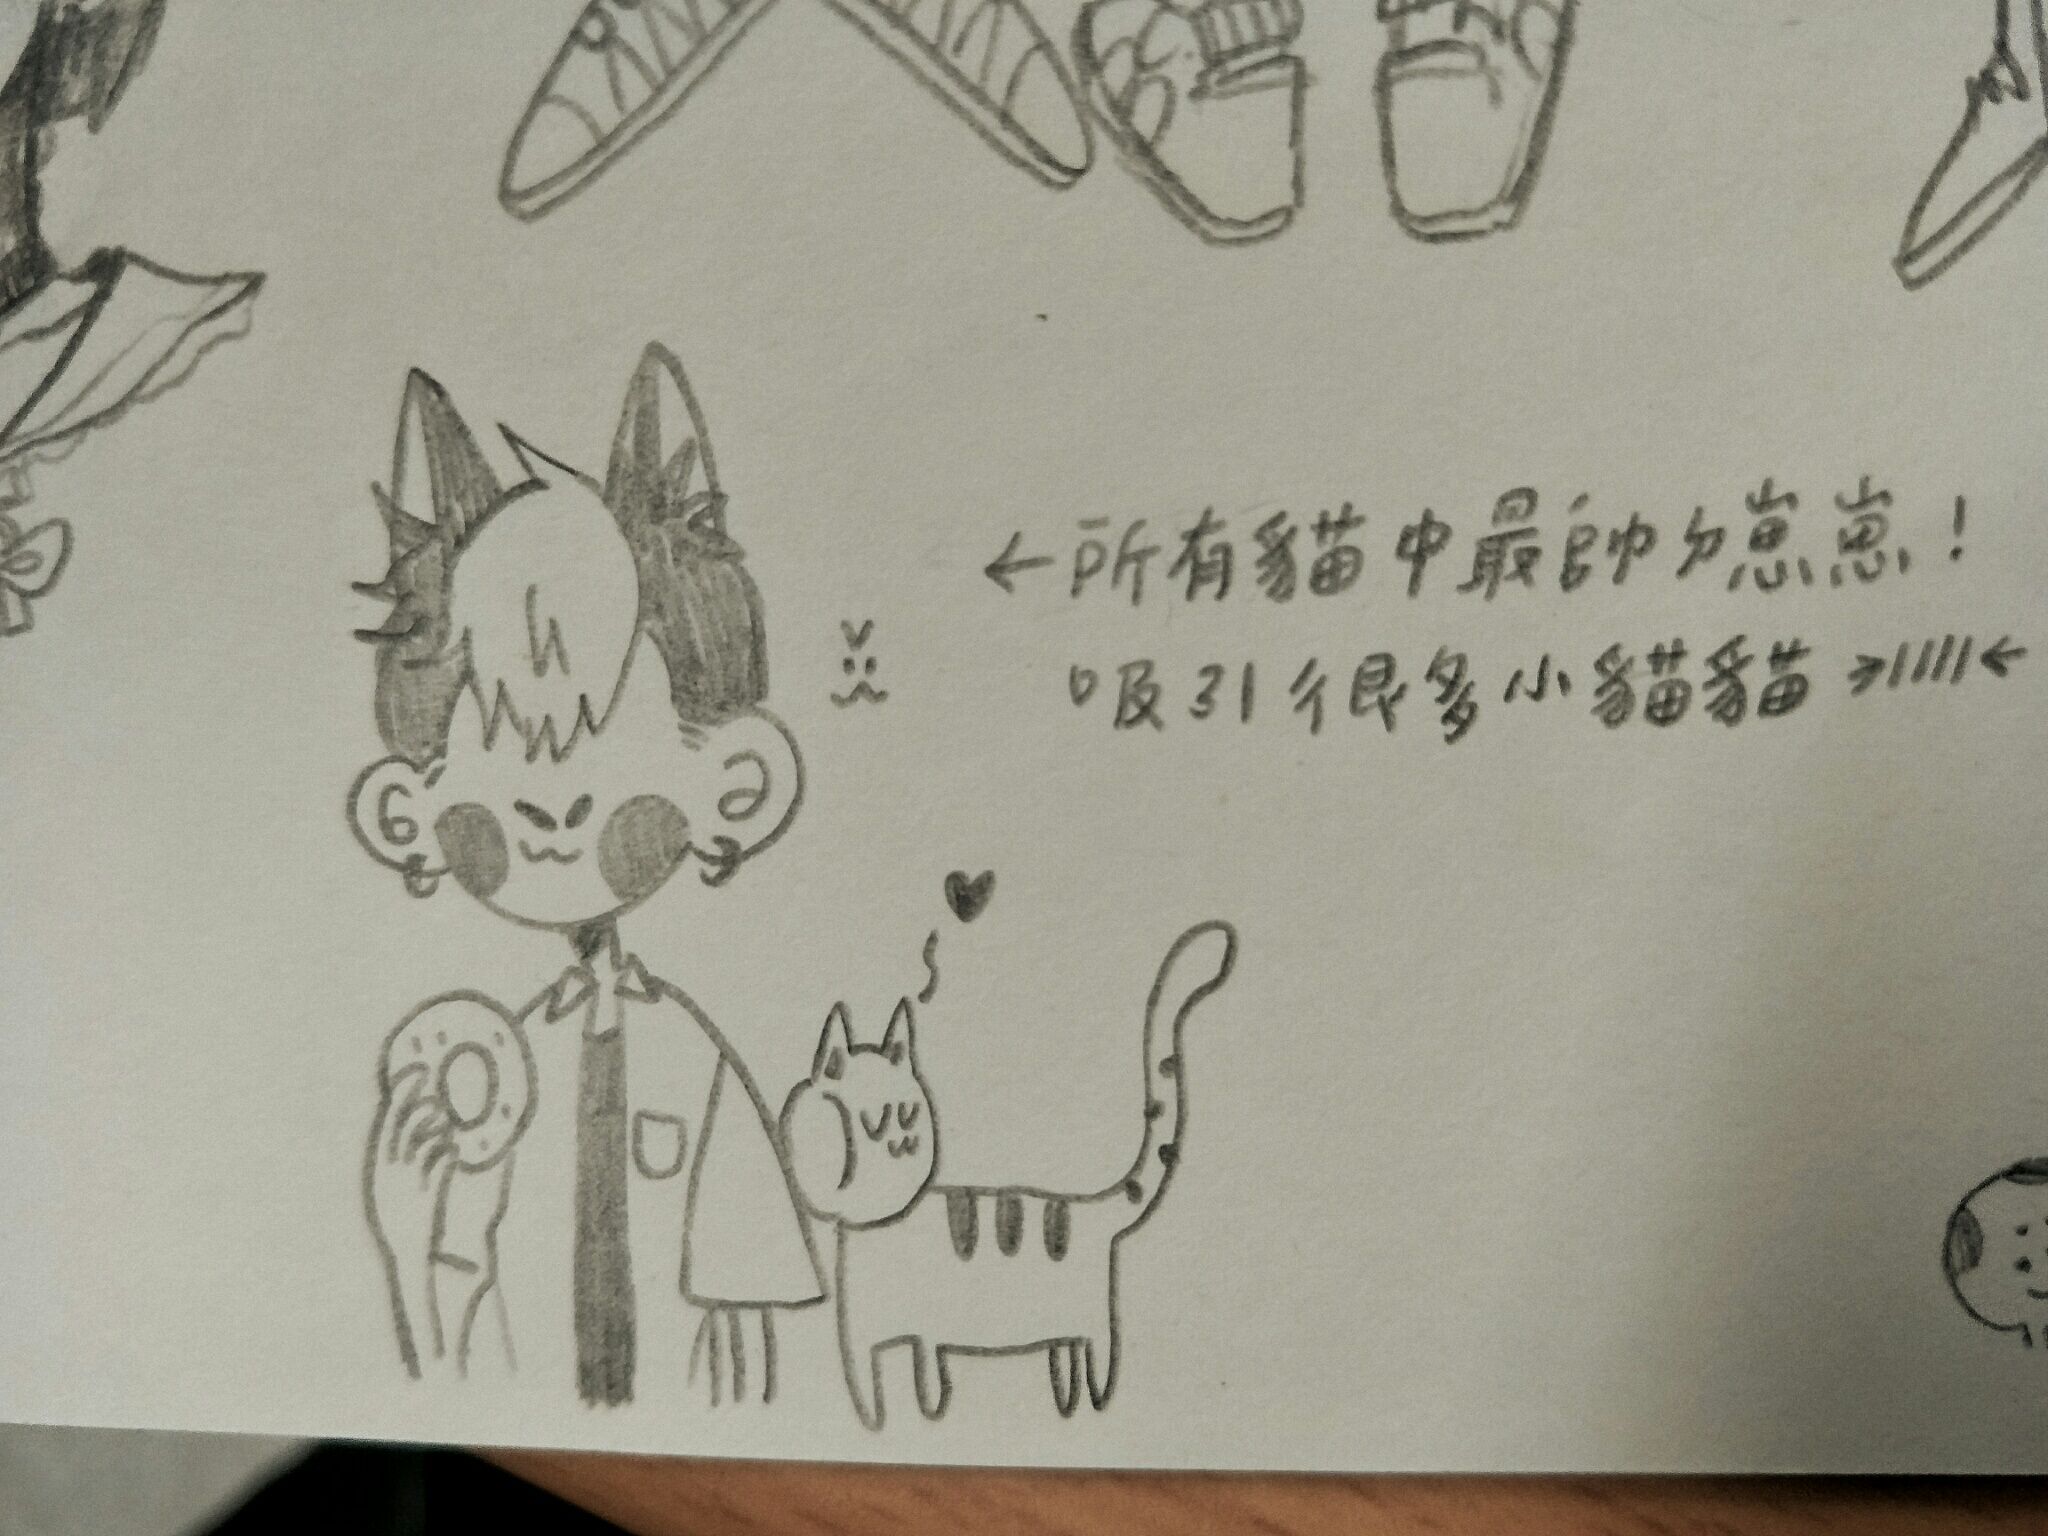 ←所有貓中最帥ㄉ崽崽！
吸引很多小貓貓>/////<